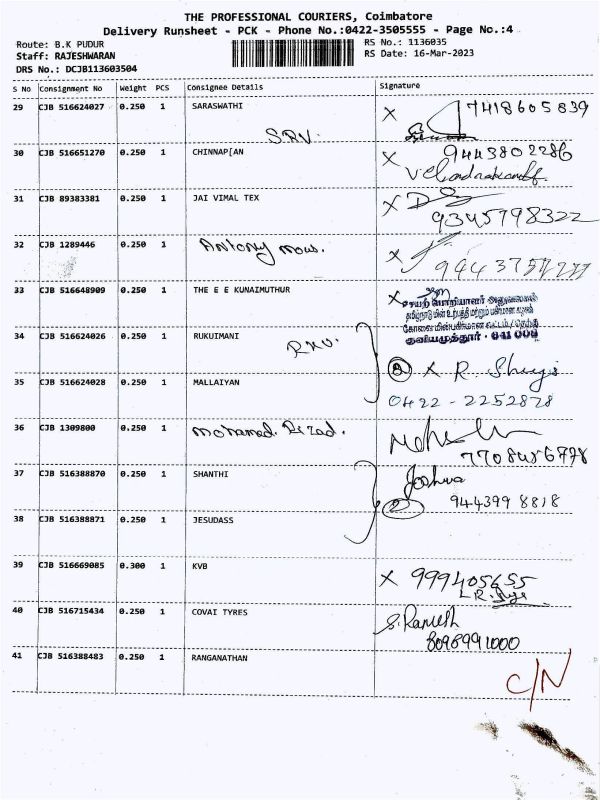 THE PROFESSIONAL COURIERS, Coimbatore
Delivery Runsheet - PCK - Phone No.:0422-3505555 - Page No.:4
Route: B.K PUDUR
RS No.: 1136035
Staff: RAJESHWARAN
RS Date: 16-Mar-2023
DRS No.: DCJB113603504
S No Consignment No Weight PCS Consignee Details Signature
29 CJB 516624027 0.250 1 SARASWATHI X 7418605839
S.R.V.
30 CJB 516651270 0.250 1 CHINNAP[AN X 9443802286
31 CJB 89383381 0.250 1 JAI VIMAL TEX X
9345798322
32 CJB 1289446 0.250 1 Antony X
33 CJB 516648909 0.250 1 THE E E KUNAIMUTHUR X
குனியமுத்தூர் - 641 008
34 CJB 516624026 0.250 1 RUKUIMANI
X R.
35 CJB 516624028 0.250 1 MALLAIYAN 0422 - 2252878
36 CJB 1309800 0.250 1 Mohamed.
7708456778
37 CJB 516388870 0.250 1 SHANTHI Joshua
2 944399 8818
38 CJB 516388871 0.250 1 JESUDASS
39 CJB 516669085 0.300 1 KVB X 999405655
40 CJB 516715434 0.250 1 COVAI TYRES S. Ramesh
8098991000
41 CJB 516388483 0.250 1 RANGANATHAN
C/N